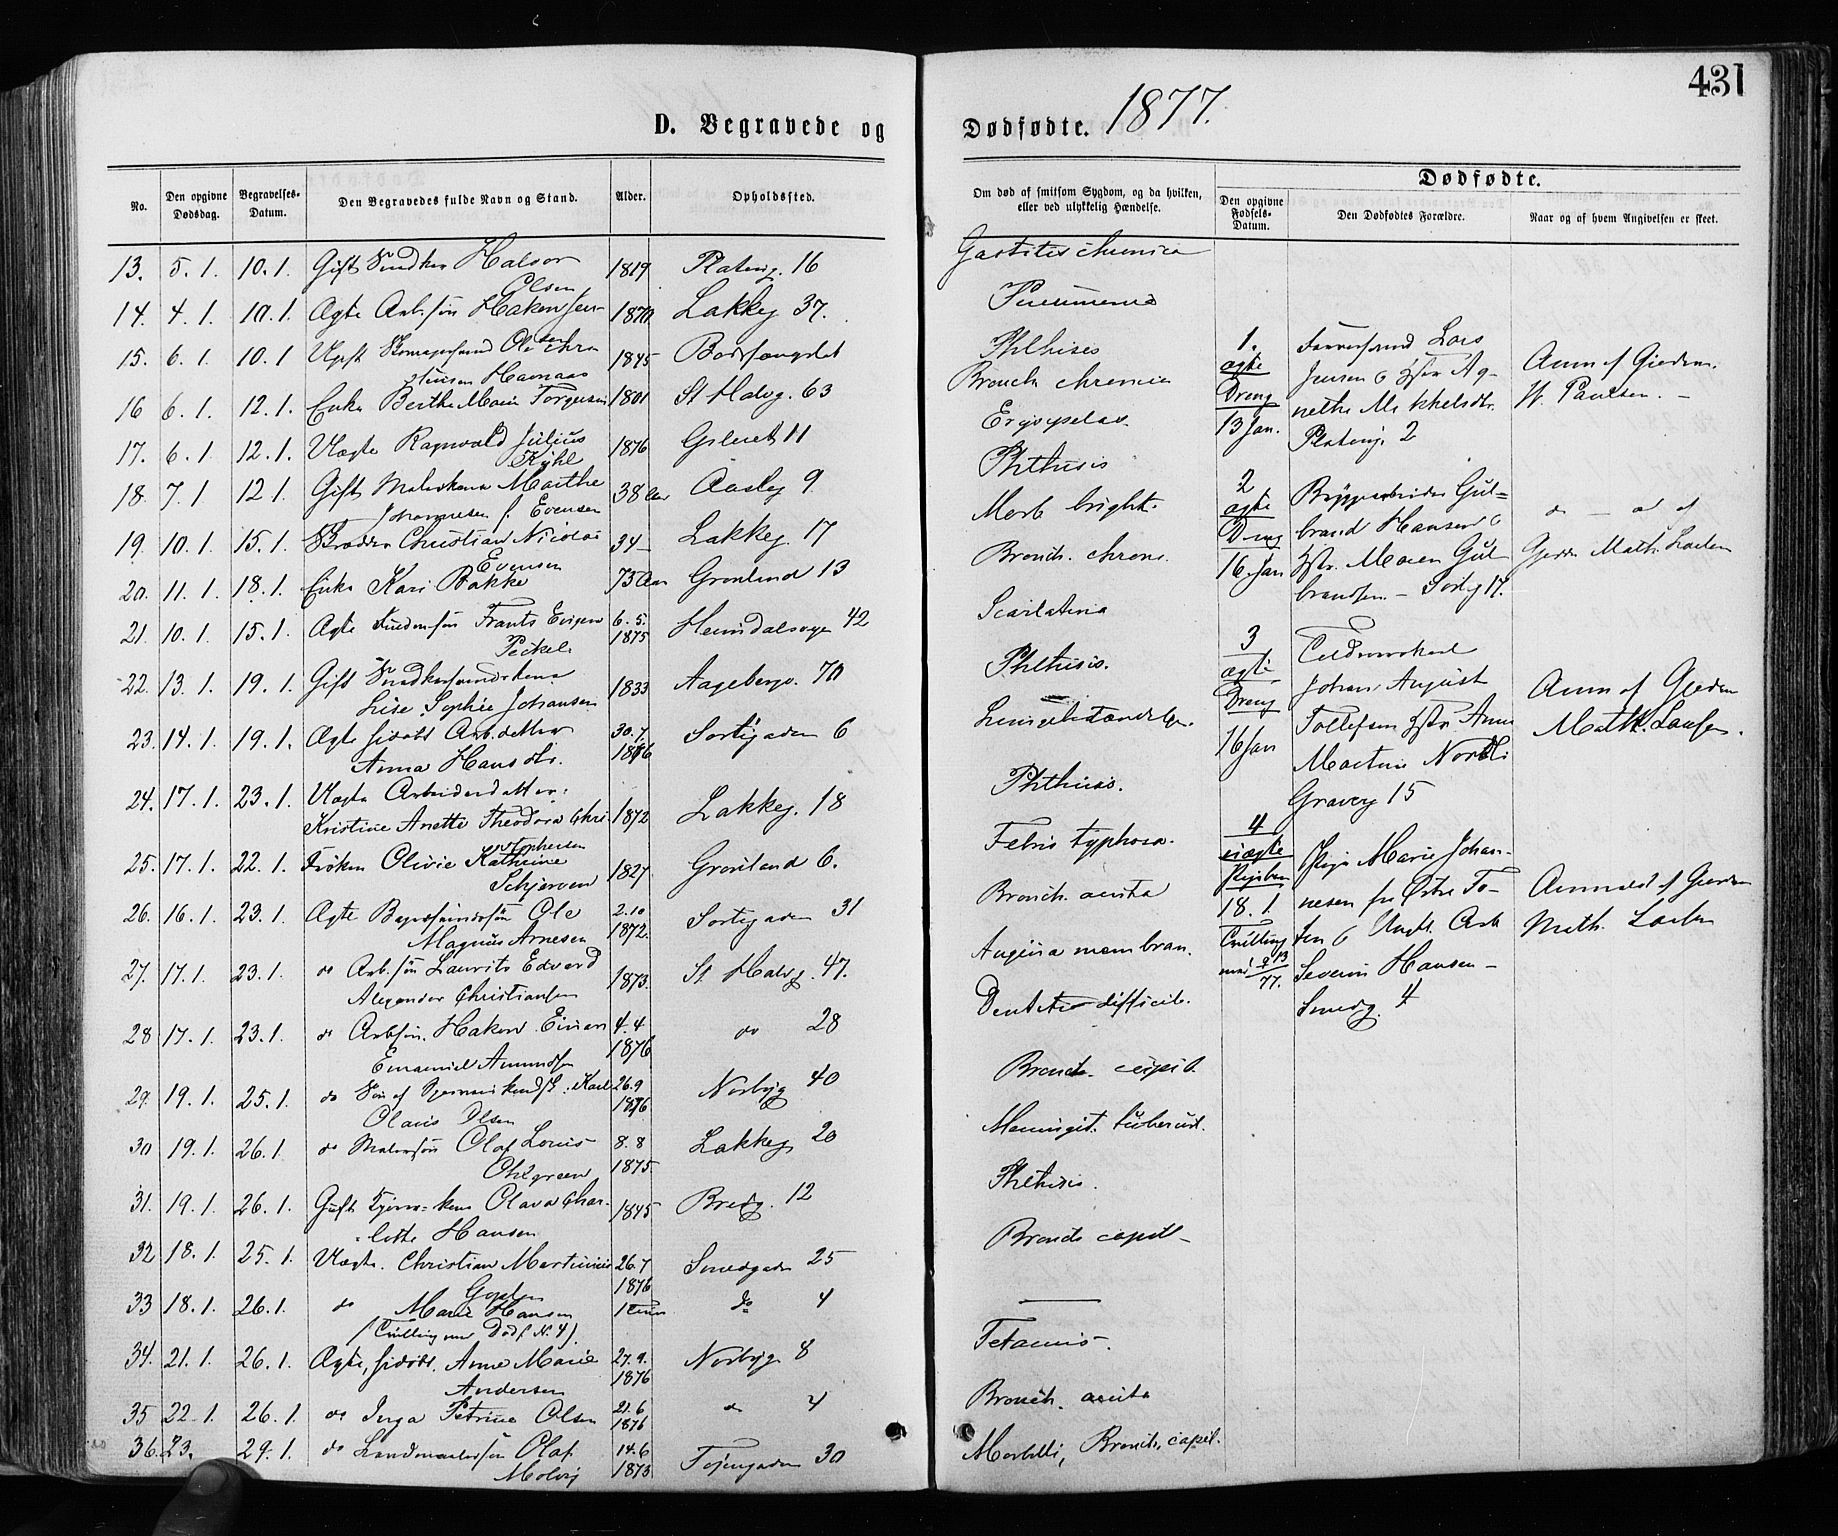 431
D. Begravede og Dødfødte. 1877.
No.
Den opgivne Dødsdag.
Begravelses-Datum.
Den Begravedes fulde Navn og Stand.
Alder.
Opholdssted.
Om død af smitsom Sygdom, og da hvilken, eller ved ulykkelig Hændelse.
Dødfødte.
Den opgivne Fødsels-Datum.
Den Dødfødtes Forældre.
Naar og af hvem Angivelsen er skeet.
13. 5. 1. 10. 1. Gift Snedker Halvor 1819 Plateng. 16
Olsen
14. 4. 1. 10. 1. Ægte Arb. søn Haken 1870 Lakkeg 37.
15. 6. 1. 10. 1 Ole 1845 Bodsfængslet
16 6. 1. 12. 1. Enke Berthe Marie Torgersen 1801 St Halvg. 63
17. 6. 1. 12. 1. Uægte Ragnvald Julius 1876 Grleret 11
Kyhl
18. 7. 1 12 1. Gift Marthe 38 Aar Aasteg 9
Johannesen f. Evensen
19. 10. 1. 15. 1. Christian Nicolai 34 Lakkeg. 17
Evensen
20. 11. 1. 18. 1. Enke Kari Bakke 73 Aar Grønland 13
21. 10. 1. 15. 1. Ægte Frants Eugen 6. 5. 1875 42
22. 13. 1. 19. 1. Gift 1833 Aagebergv. 70
Lise Sophie Johansen
23. 14. 1. 19. 1. Ægte sidøbt Arb. datter 30. 7. 1876 Sorligaden 6
Anna Hansdtr.
24. 17. 1. 23. 1. Uægte Arbeiderdatter: 1872 Lakkeg. 18
Kristine Anette Theodora Chri-
stophersen
25. 17. 1. 22. 1. Frøken Olivie Kathrine 1827 Grønland 6.
Schjerven
26. 16. 1. 23. 1. Ægte Ole 2. 10 1872. Sorligaden 31
Magnus Arnesen
27. 17. 1. 23. 1. do Arb. søn Laurits Edvard 1873. St Halvg. 47.
Alexander Christiansen
28 17. 1. 23. 1. do Arbsøn. Haken Einar 4. 4 1876 do 28
Emanuel Amundsen
29. 19. 1. 25. 1. do Søn af Karl 26. 9 1876 Norbyg 40
Olaus Olsen
30 19. 1. 26. 1. do Malersøn Olaf Louis 8. 8 1875 Lakkeg 20
31. 19. 1. 26. 1. Gift Olava Char- 1845 Bredg. 12
lotte Hansen
32 18. 1. 25. 1. Uægte. Christian Martinius 26. 7 1876 Smedgaden 25
33 18. 1. 26. 1. do Marie Hansen 1 Time do 4
(Tvilling med Dødf. N. 4).
34. 21. 1. 26. 1. Ægte, sidøbt. Anne Marie 27. 9. 1876 Norbyg 8
Andersen
35 22. 1. 26. 1. do Inga Petrine Olsen 21. 6 1876 do 4
36. 23. 29. 1. do Olaf 14. 6 1873 Tøiengaden 30
Molvig
Gastitis chronica
Pneumonia
Phthisis
Bronch. chronica
Erysypelas.
Phthisis
Morb. brighti.
Bronch. chron.
Scarlatina
Phthisis.
Lungebetændelse.
Phthisis.
Febris typhosa.
Bronch. acuta
Angina membran.
Dentitio difficile.
Bronch. capil.
Meningit. tubercul.
Phthisis.
Bronch capil
Tetanus.
Bronch. acuta
Morbilli, Bronch. capil.
1. ægte Dreng 13 Jan.
Lars
Jensen & Hstr Ag-
nethe Mikkelsdtr.
Plateng. 2
Anm af Gjordem.
W. Paulsen.
2 ægte Dreng 16. Jan
Bryggearbeider Gul-
brand Hansen &
Hstr. Maren Gul-
brandsen. Sorlig 17.
do — do af
Gjordm Math. Larsen
3 ægte Dreng 16 Jan
Johan August
Tollefsen Hstr Anne
Martine Nordli
Graveg 15
Anm af Gjordm
Math. Larsen.
4 uægte Pigebarn 18. 1. Tvilling
Pige Marie Johan-
nesen fr Østre To-
ten & Ungk. Arb
Severin Hansen
Smedg. 4
Anmeldt af Gjordm
Math. Larsen